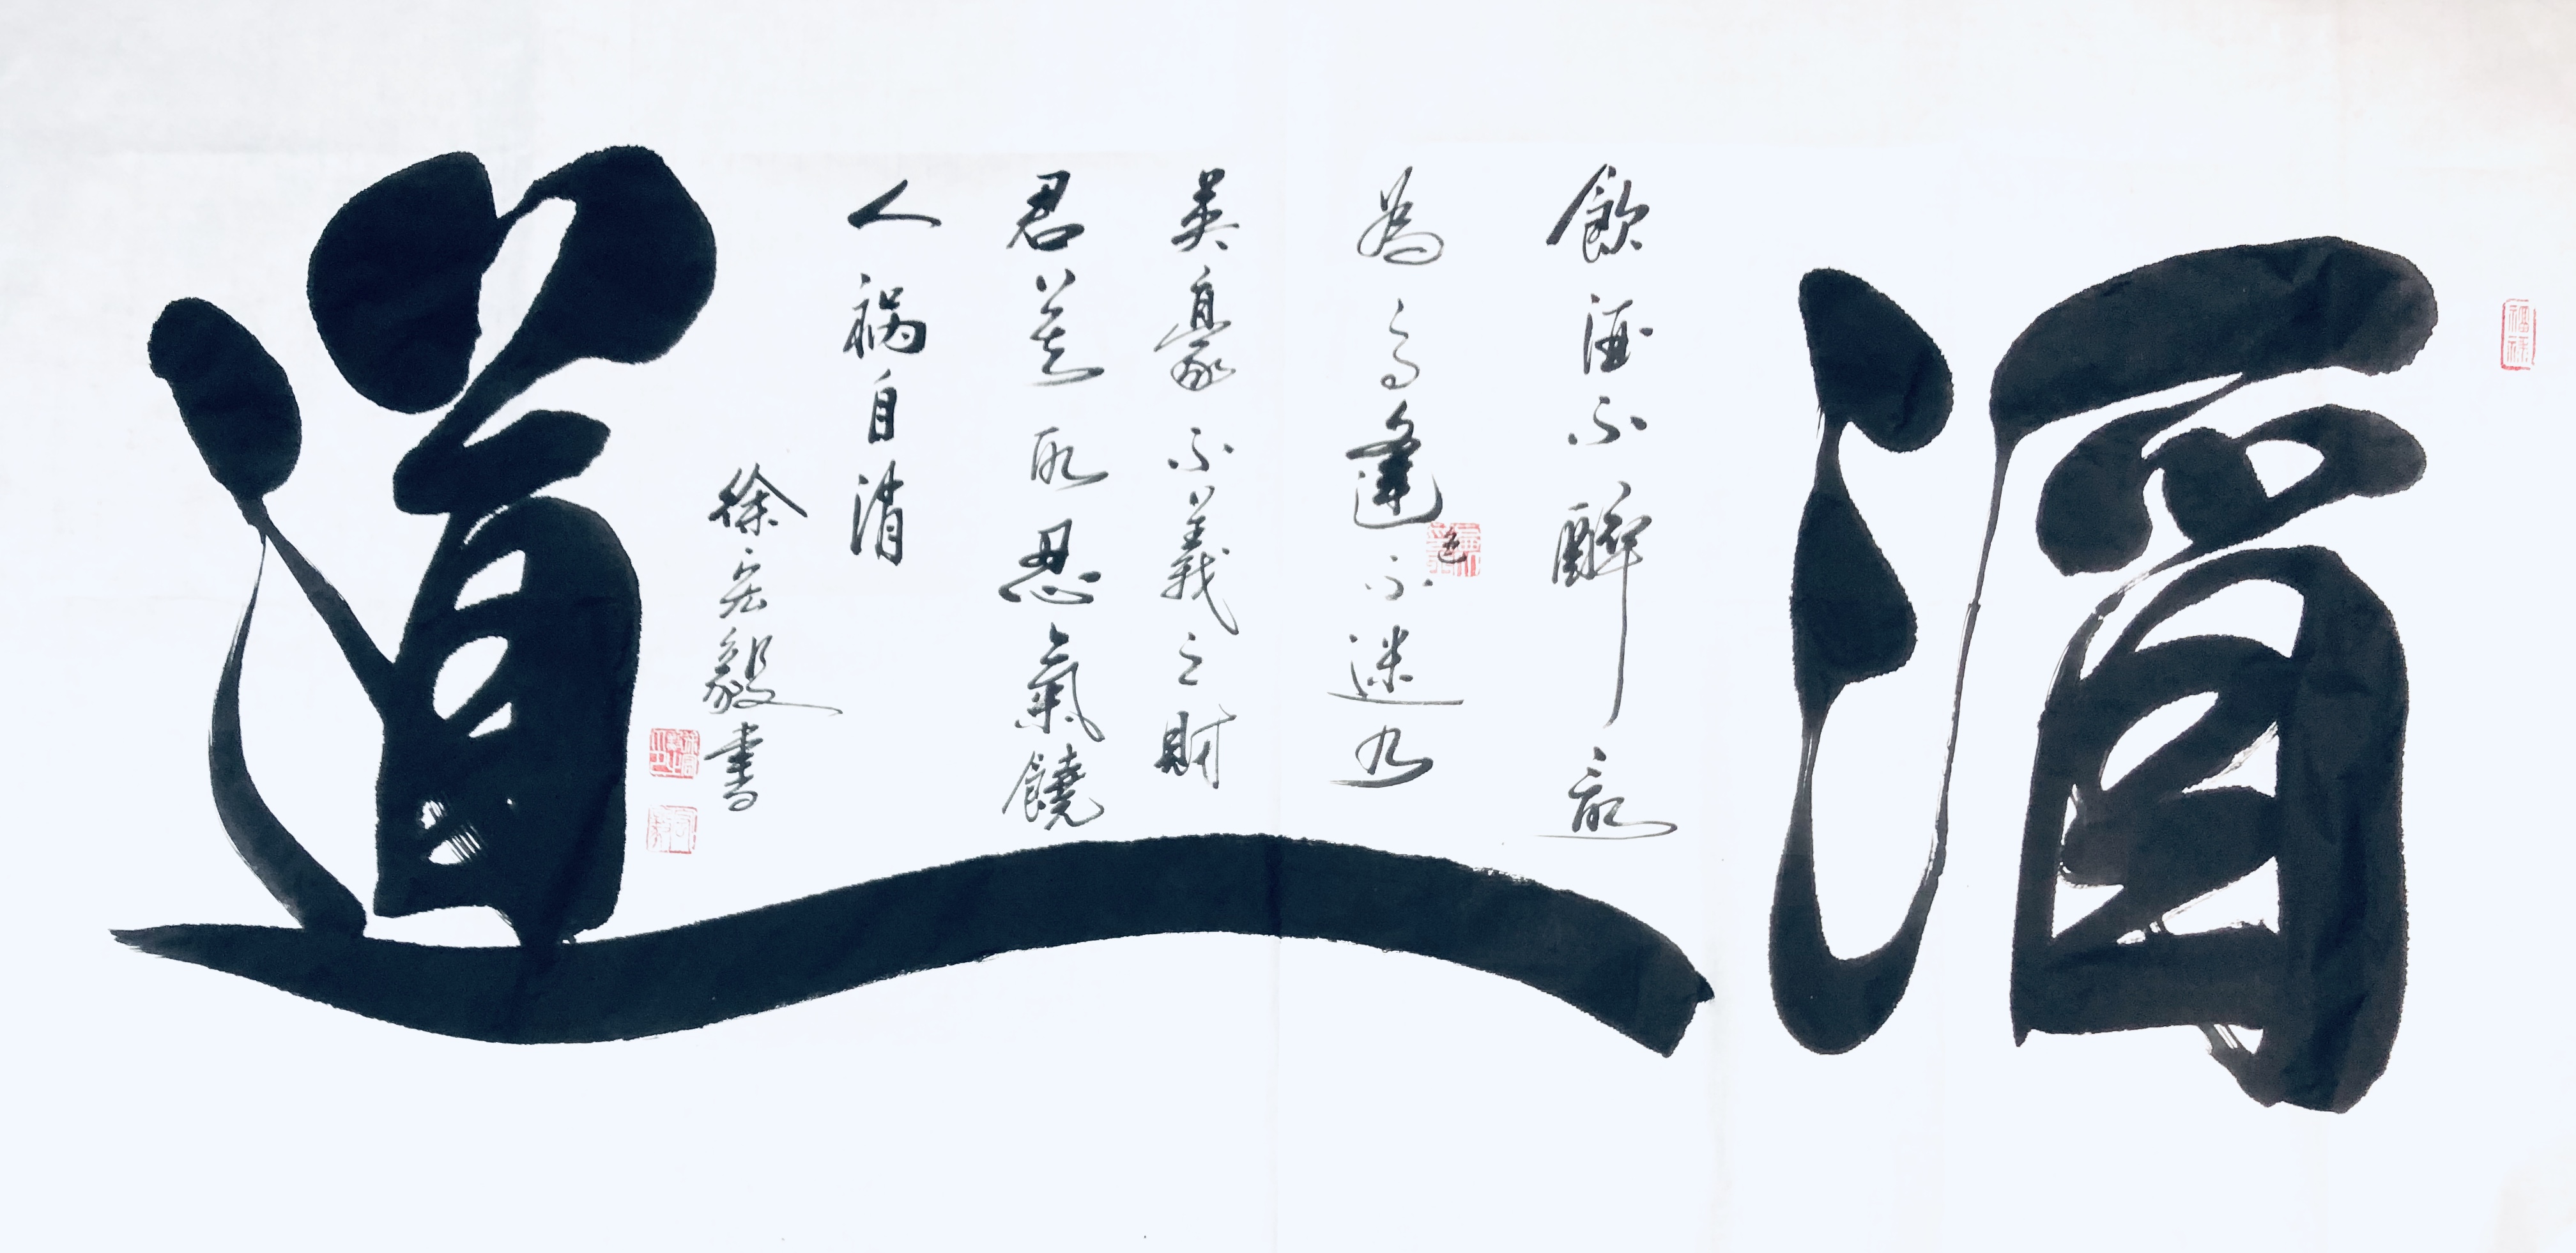 酒道
飲酒不醉最
為高逢色不迷乃
英豪不義之財
君莫取忍氣饒
人祸自消
徐宏毅書